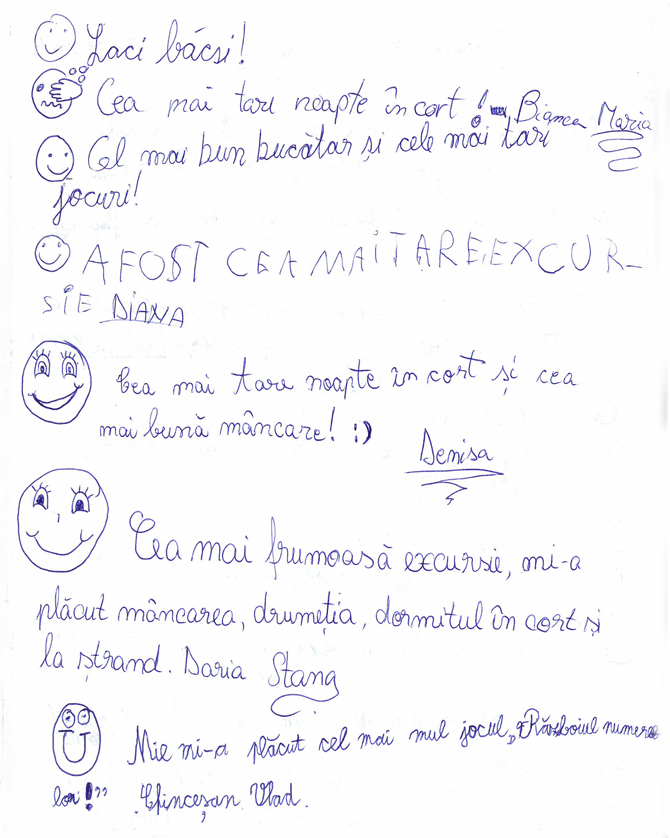 Laci bácsi!
Cea mai tare noapte în cort! Bianca Maria
Cel mai bun bucătar și cele mai tari
jocuri!
A FOST CEA MAI TARE EXCUR-
SIE DIANA
Cea mai tare noapte în cort și cea
mai bună mâncare! :)
Denisa
Cea mai frumoasă excursie, mi-a
plăcut mâncarea, drumeția, dormitul în cort și
la ștrand. Daria Stang
Mie mi-a plăcut cel mai mul jocul „Războiul numere
lor!” Vlad.